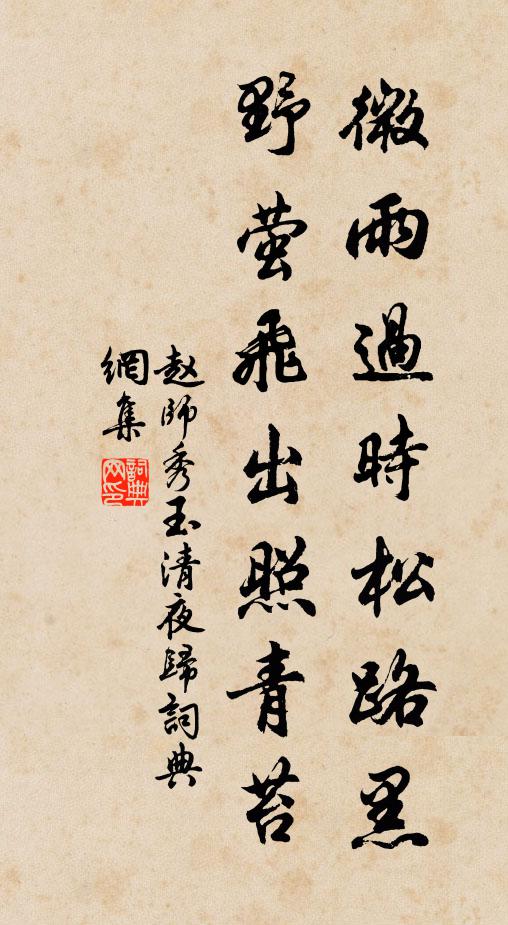 微雨過時松路黑
野萤飛出照青苔
赵師秀玉清夜歸詞典
網集
詞典
网印